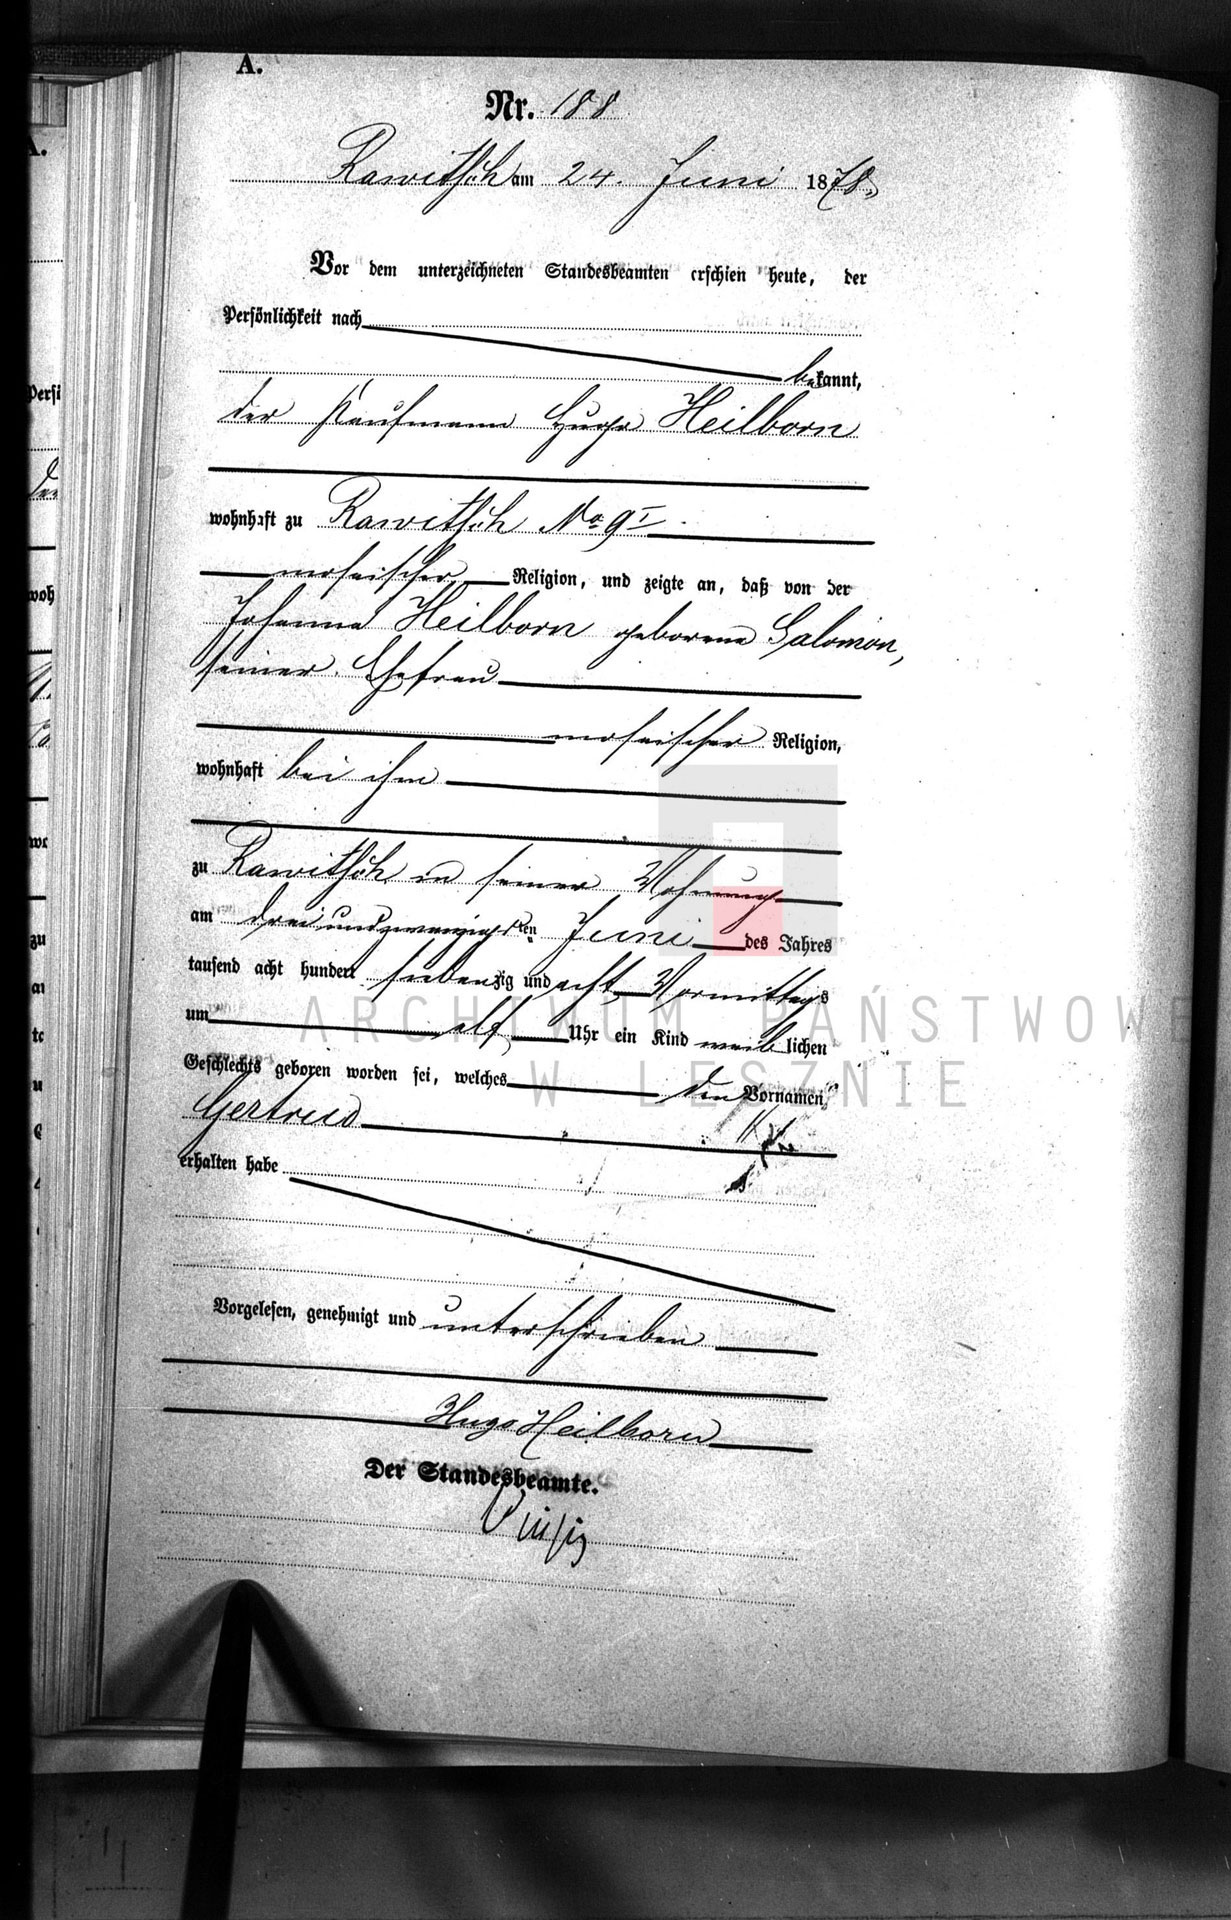 A.
Nr. 188
Rawitsch am 24. Juni 1878.
Vor dem unterzeichneten Standesbeamten erschien heute, der
Persönlichkeit nach
bekannt,
der Kaufmann Hugo Heilborn
wohnhaft zu Rawitsch No 9 I
mosaischer Religion, und zeigte an, daß von der
Johanna Heilborn geborene Salomon,
seiner Ehefrau
mosaischer Religion,
wohnhaft bei ihm
zu Rawitsch in seiner Wohnung
am drei und zwanzigsten Juni des Jahres
tausend acht hundert siebenzig und acht Vormittags
um elf Uhr ein Kind weiblichen
Geschlechts geboren worden sei, welches den Vornamen
Gertrud
erhalten habe
Vorgelesen, genehmigt und unterschrieben
Hugo Heilborn
Der Standesbeamte.
ARCHIWUM PAŃSTWOW
W LESZNIE